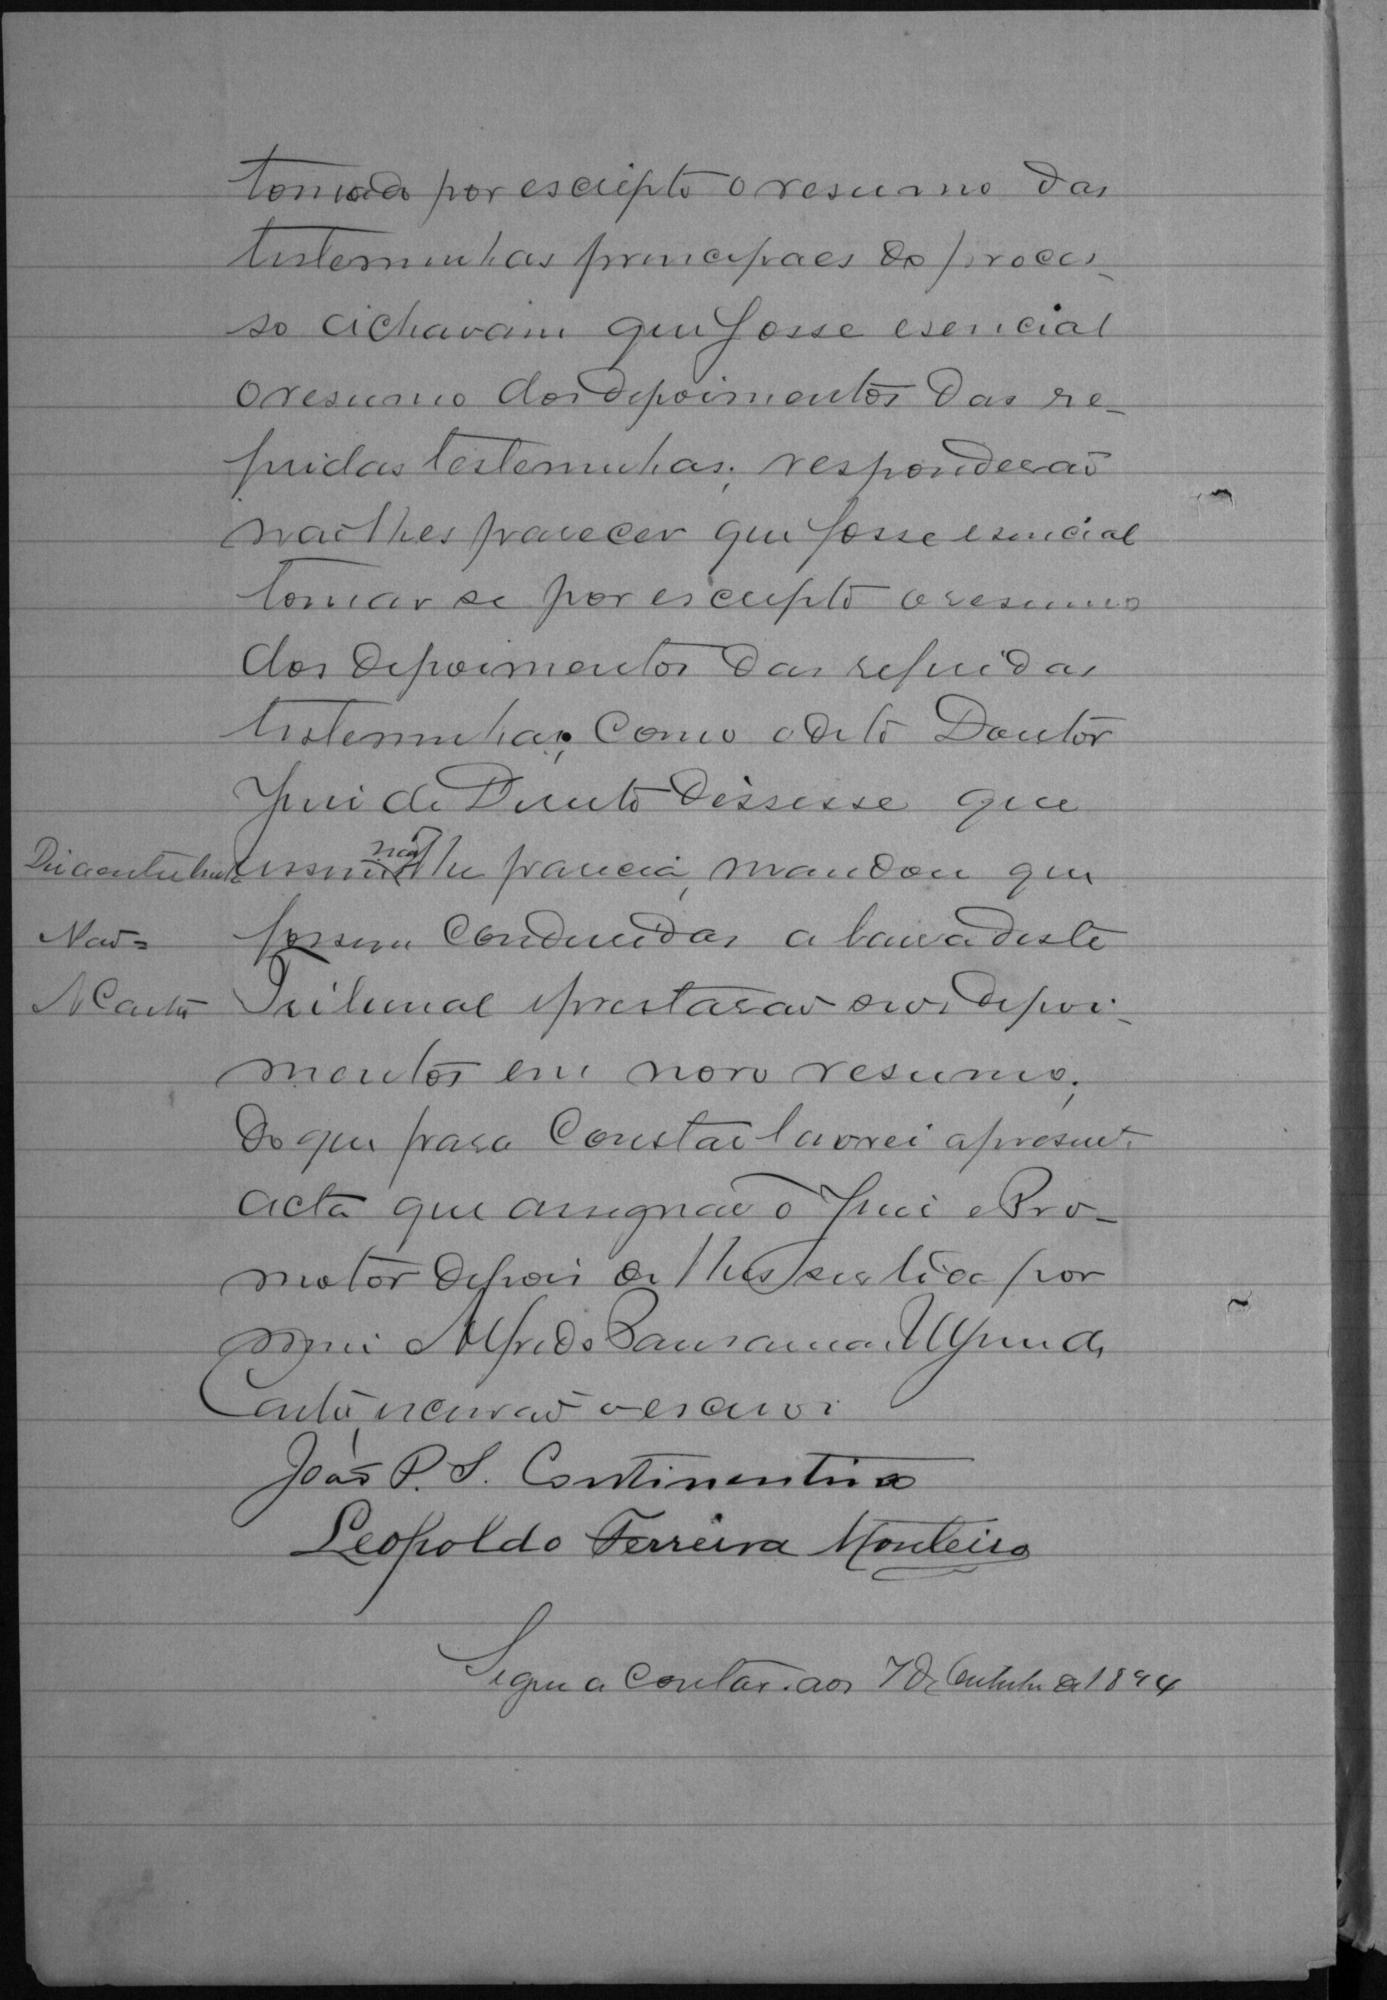 tomado por escripto o resumo das
testemunhas principaes do proces-
so achavam que fosse esencial
o resumo dos depoimentos das re-
feridas testemunhas; responderaõ
naõ lhes parecer que fosse esencial
tomar se por escripto o resumo
dos depoimentos das referidas
testemunhas; Como o dito Doutor
Juis de Direito dissesse que
naõ lhe parecia, mandou que
Naõ=
fossem Conduzidas a barra deste
Tribunal e prestaraõ seos depoi-
mentos em novo resumo;
do que para Constar lavrei a present.
acta que assignaõ o Juis e Pro-
motor depois de lhes ser lida por
mim Alfredo
escrivaõ o escrevi
João P. S. Continentino
Leopoldo Ferreira Monteiro
Segue a contar. aos 7 de Outubro de 1894